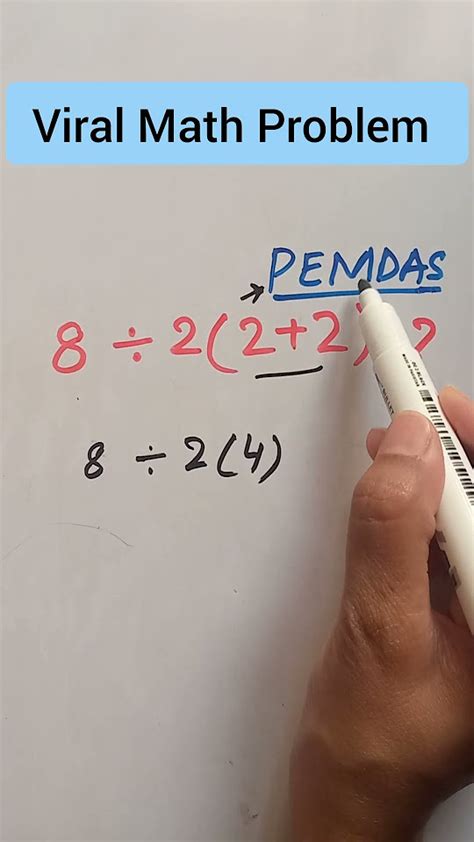 Viral Math Problem
PEMDAS
8 ÷ 2(2+2)
8 ÷ 2(4)